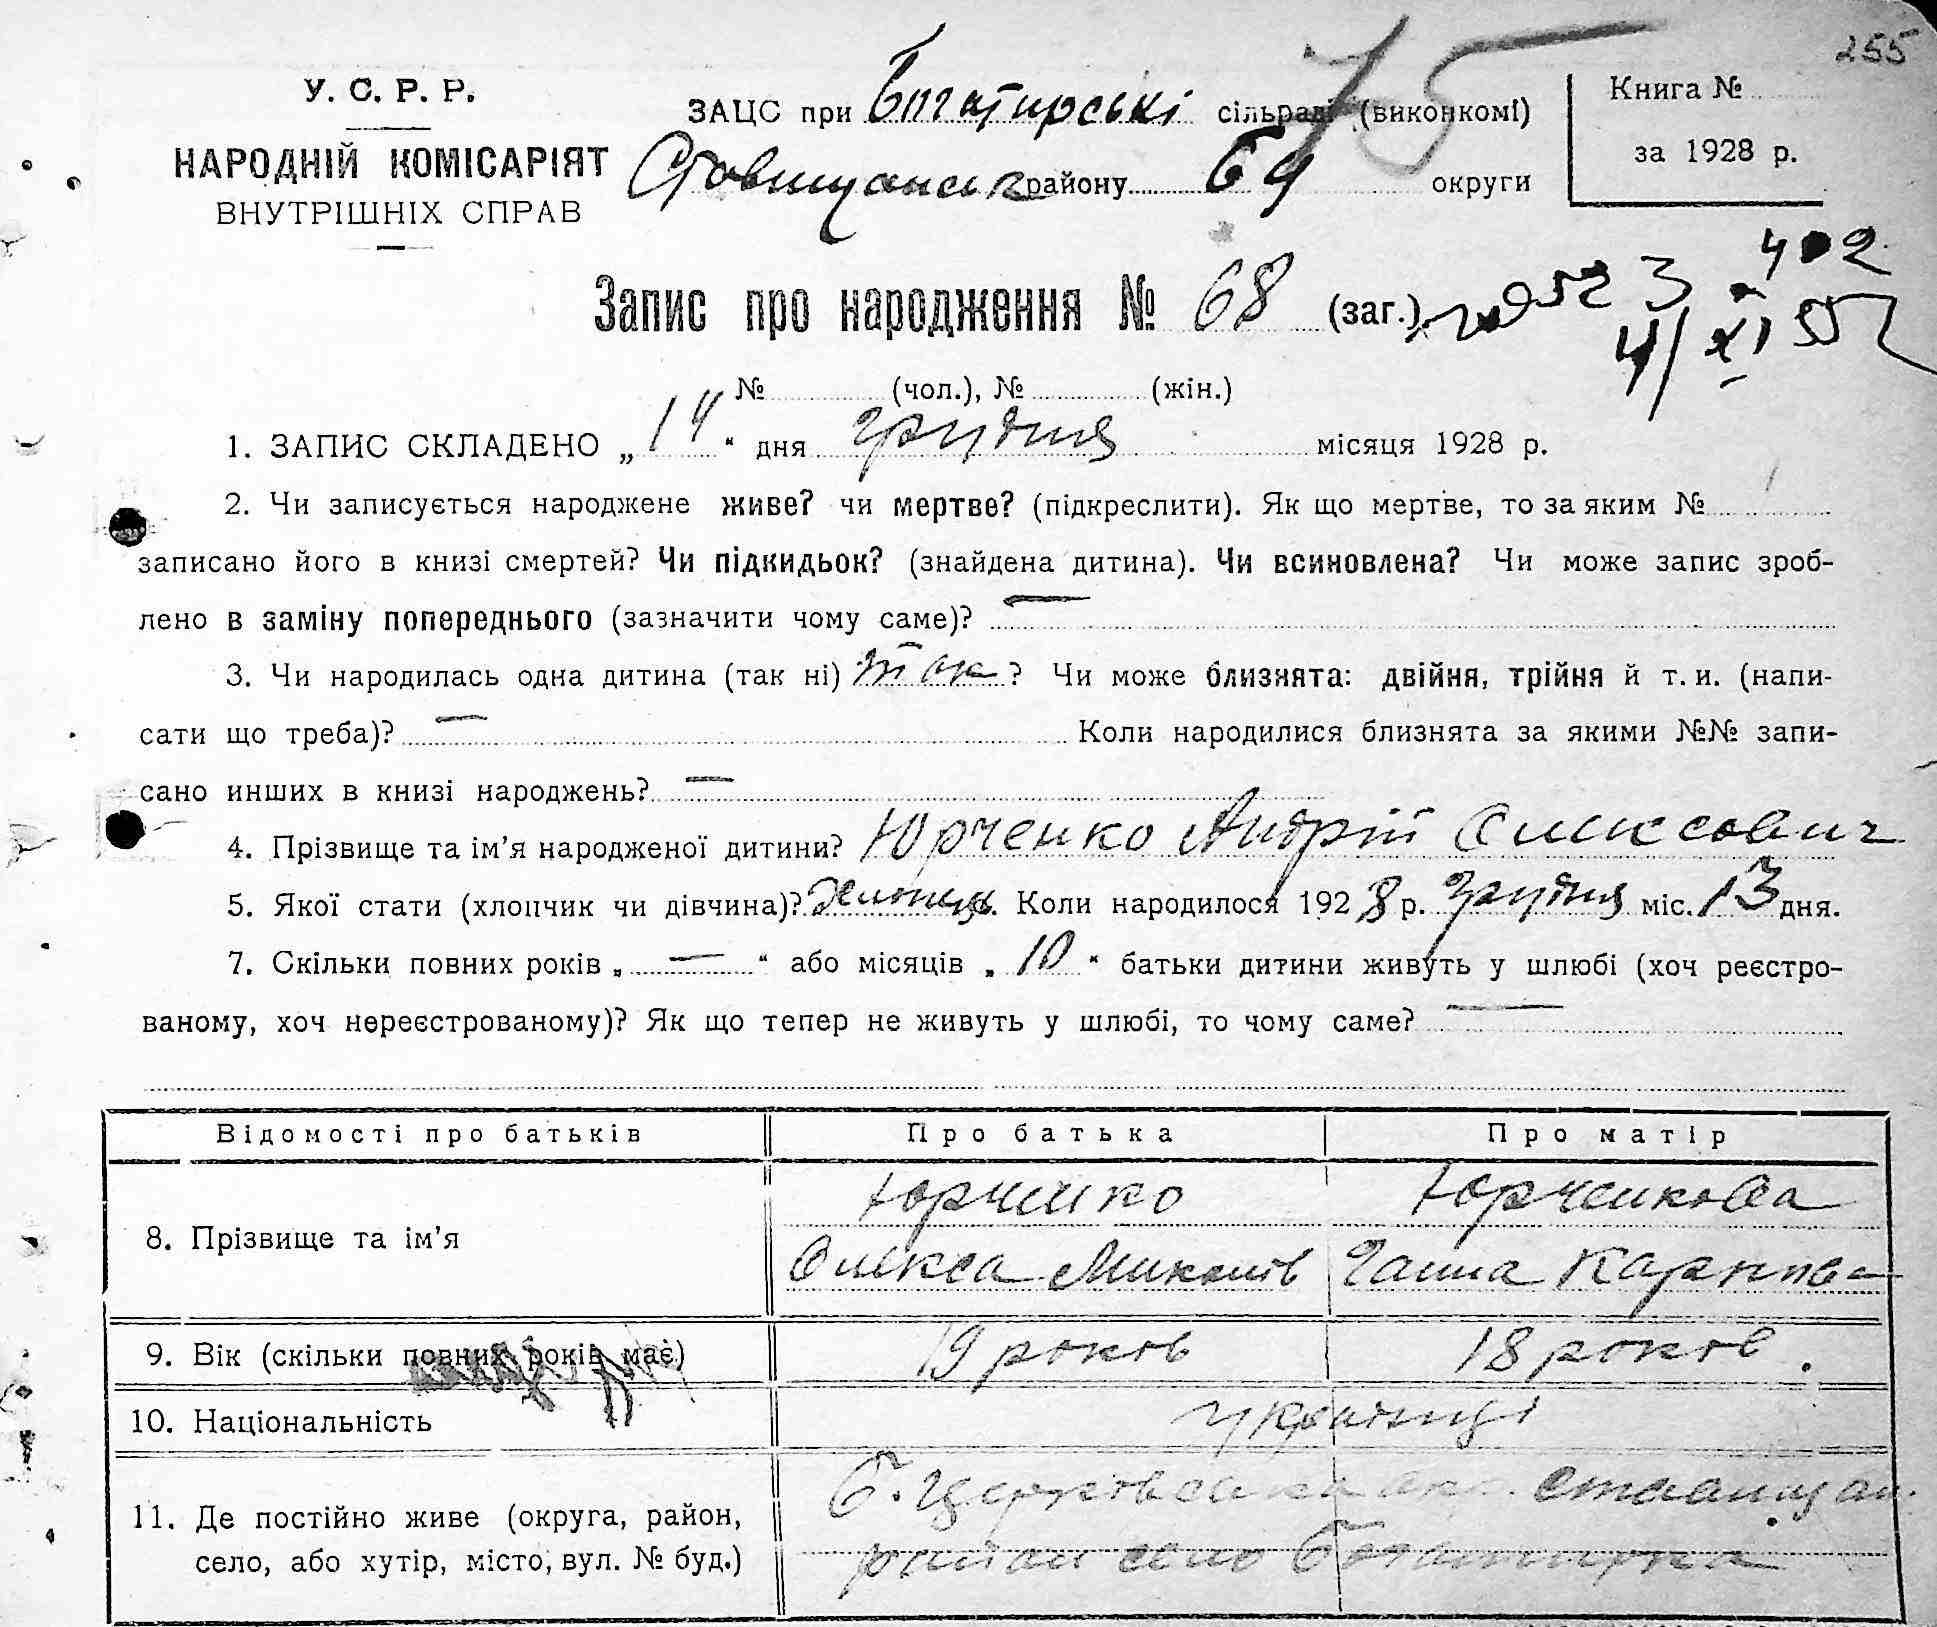 255
У. С. Р. Р.
НАРОДНІЙ КОМІСАРІЯТ
ВНУТРІШНІХ СПРАВ
ЗАЦС при Богатирські сільраді (виконкомі)
75
району Бц округи
Книга №
за 1928 р.
Запис про народження № 68 (заг.)
4/XI 55
№ (чол.), № (жін.)
1. ЗАПИС СКЛАДЕНО „14“ дня грудня місяця 1928 р.
2. Чи записується народжене живе? чи мертве? (підкреслити). Як що мертве, то за яким №
записано його в книзі смертей? Чи підкидьок? (знайдена дитина). Чи всиновлена? Чи може запис зроб-
лено в заміну попереднього (зазначити чому саме)? —
3. Чи народилась одна дитина (так ні) так? Чи може близнята: двійня, трійня й т. и. (напи-
сати що треба)? — Коли народилися близнята за якими №№ запи-
сано инших в книзі народжень? —
4. Прізвище та ім’я народженої дитини? Юрченко Андрій Олексович
5. Якої стати (хлопчик чи дівчина)? Хлопець. Коли народилося 1928 р. грудня міс. 13 дня.
7. Скільки повних років „ — “ або місяців „ 10 “ батьки дитини живуть у шлюбі (хоч реєстро-
ваному, хоч нереєстрованому)? Як що тепер не живуть у шлюбі, то чому саме? —
Відомості про батьків Про батька Про матір
8. Прізвище та ім’я
Юрченко Юрченкова
Олекса Миколів Ганна Карпова
9. Вік (скільки повних років має) 19 років 18 років.
10. Національність українці
11. Де постійно живе (округа, район,
село, або хутір, місто, вул. № буд.)
Б. Церківська окр. Ставищан.
район село Богатирка